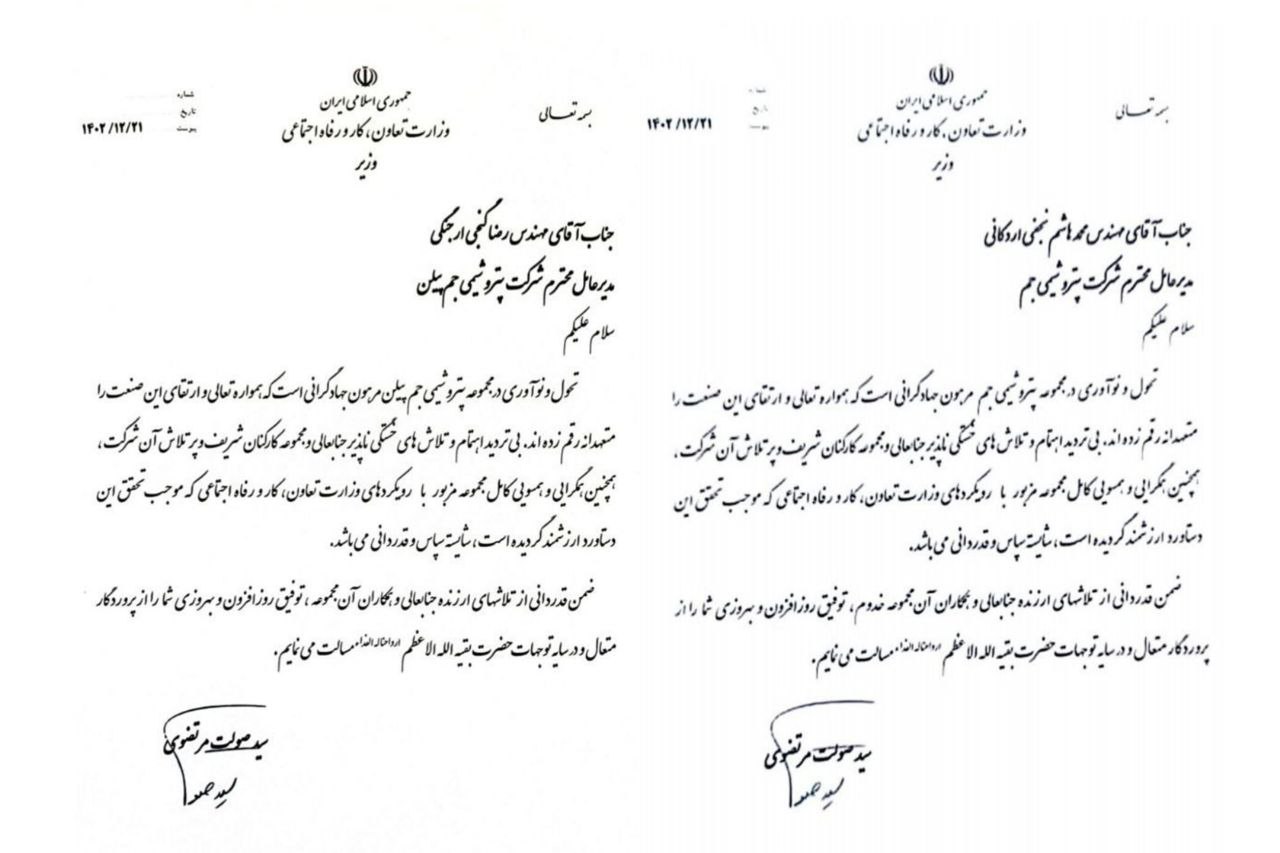 بسمه تعالی
جمهوری اسلامی ایران
وزارت تعاون، کار و رفاه اجتماعی
وزیر
شماره
تاریخ
پیوست
۱۴۰۲/۱۲/۲۱
جناب آقای مهندس محمد هاشم نجفی اردکانی
مدیرعامل محترم شرکت پتروشیمی جم
سلام علیکم
تحول و نوآوری در مجموعه پتروشیمی جم مرهون جهادگرانی است که همواره تعالی و ارتقای این صنعت را
متعهدانه رقم زده اند. بی تردید اهتمام و تلاش های خستگی ناپذیر جنابعالی و مجموعه کارکنان شریف و پر تلاش آن شرکت،
همچنین همگرایی و همسویی کامل مجموعه مزبور با رویکردهای وزارت تعاون، کار و رفاه اجتماعی که موجب تحقق این
دستاورد ارزشمند گردیده است، شایسته سپاس و قدردانی می باشد.
ضمن قدردانی از تلاشهای ارزنده جنابعالی و همکاران آن مجموعه خدوم، توفیق روزافزون و بهروزی شما را از
پروردگار متعال و در سایه توجهات حضرت بقیه الله الاعظم ارواحناله الفداء مسالت می نمایم.
سید صولت مرتضوی
بسمه تعالی
جمهوری اسلامی ایران
وزارت تعاون، کار و رفاه اجتماعی
وزیر
شماره
تاریخ
پیوست
۱۴۰۲/۱۲/۲۱
جناب آقای مهندس رضا گنجی ارجنگی
مدیرعامل محترم شرکت پتروشیمی جم پیلن
سلام علیکم
تحول و نوآوری در مجموعه پتروشیمی جم پیلن مرهون جهادگرانی است که همواره تعالی و ارتقای این صنعت را
متعهدانه رقم زده اند. بی تردید اهتمام و تلاش های خستگی ناپذیر جنابعالی و مجموعه کارکنان شریف و پر تلاش آن شرکت،
همچنین همگرایی و همسویی کامل مجموعه مزبور با رویکردهای وزارت تعاون، کار و رفاه اجتماعی که موجب تحقق این
دستاورد ارزشمند گردیده است، شایسته سپاس و قدردانی می باشد.
ضمن قدردانی از تلاشهای ارزنده جنابعالی و همکاران آن مجموعه، توفیق روزافزون و بهروزی شما را از پروردگار
متعال و در سایه توجهات حضرت بقیه الله الاعظم ارواحناله الفداء مسالت می نمایم.
سید صولت مرتضوی